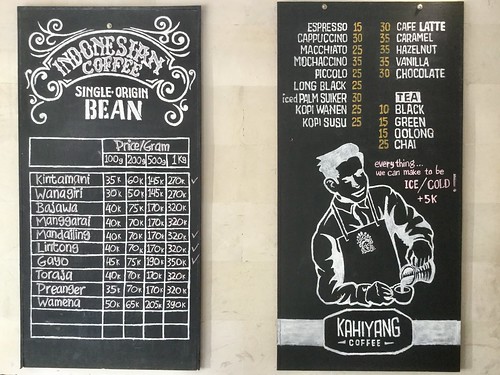 INDONESIAN
COFFEE
SINGLE-ORIGIN
BEAN
Price/Gram
100g 200g 500g 1Kg
Kintamani 35K 60K 145K 270K
Wanagiri 30K 50K 145K 270K
Bajawa 40K 75K 170K 320K
Manggarai 40K 70K 170K 320K
Mandailing 40K 70K 170K 320K
Lintong 40K 70K 170K 320K
Gayo 45K 75K 190K 350K
Toraja 40K 70K 170K 320K
Preanger 35K 70K 170K 320K
Wamena 50K 65K 205K 390K
ESPRESSO 15
CAPPUCCINO 30
MACCHIATO 25
MOCHACCINO 35
PICCOLO 25
LONG BLACK 25
iced PALM SUIKER 30
KOPI WANEN 25
KOPI SUSU 25
30 CAFE LATTE
35 CARAMEL
35 HAZELNUT
35 VANILLA
30 CHOCOLATE
TEA
10 BLACK
15 GREEN
15 OOLONG
25 CHAI
everything...
we can make to be
ICE/COLD
+5K
KAHIYANG
COFFEE